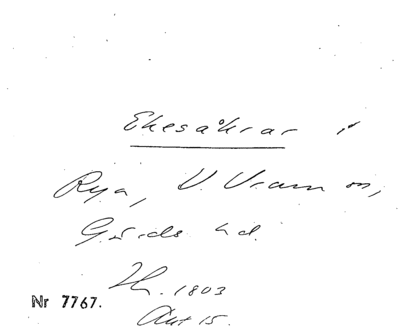 Ekesåkrar i
Rya, V. Vram sn,
Gärds hd.
Lm. 1803
Akt 15.
Nr 7767.